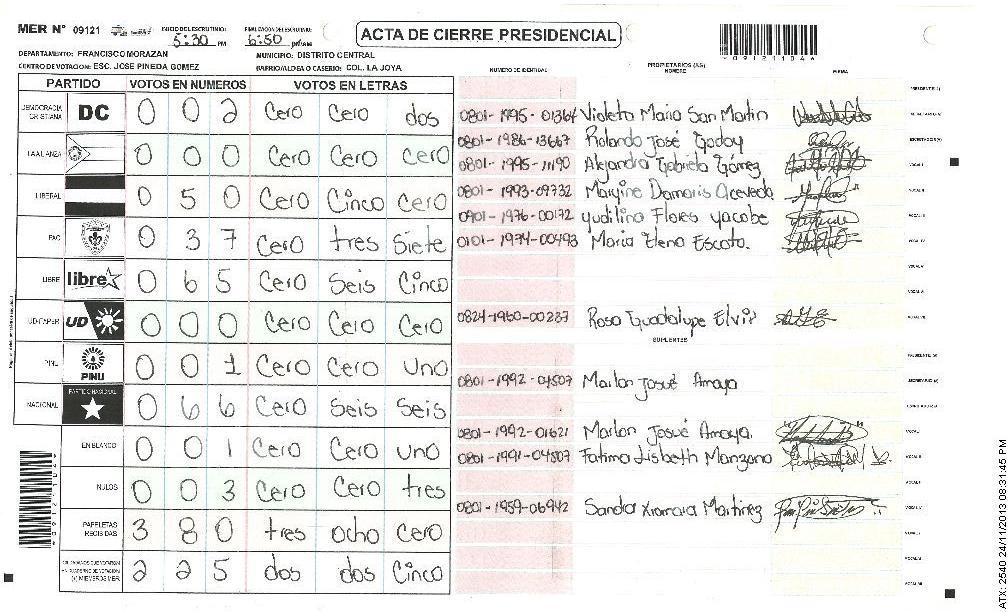 MER N° 09121 INICIO DE ESCRUTINIO: 5:30 PM FINALIZACION DE ESCRUTINIO: 6:50 PM/AM ACTA DE CIERRE PRESIDENCIAL
DEPARTAMENTO: FRANCISCO MORAZAN MUNICIPIO: DISTRITO CENTRAL
CENTRO DE VOTACION: ESC. JOSE PINEDA GOMEZ BARRIO/ALDEA O CASERIO: COL. LA JOYA
NUMERO DE IDENTIDAD PROPIETARIOS (AS) NOMBRE FIRMA
PARTIDO VOTOS EN NUMEROS VOTOS EN LETRAS
DEMOCRACIA CRISTIANA DC 0 0 2 Cero Cero dos
0801-1995-01364 Violeta Maria San Martin
0801-1986-13667 Rolando José Godoy
LA ALIANZA 0 0 0 Cero Cero Cero
0801-1995-11190 Alejandra Gabriela Gómez
LIBERAL 0 5 0 Cero Cinco Cero
0801-1993-09732 Damaris Acevedo
0901-1976-00172 Flores
PAC 0 3 7 Cero tres Siete
0101-1974-00493 Maria Elena Escoto.
LIBRE libre 0 6 5 Cero Seis Cinco
UD-FAPER UD 0 0 0 Cero Cero Cero
0824-1960-00237 Rosa Guadalupe
SUPLENTES
PINU PINU 0 0 1 Cero Cero uno
0801-1992-04507 Marlon Josué Amaya
NACIONAL PARTIDO NACIONAL 0 6 6 Cero Seis Seis
EN BLANCO 0 0 1 Cero Cero uno
0801-1992-01621 Marlon Josué Amaya.
0801-1991-04507 Fatima Lisbeth Manzano
NULOS 0 0 3 Cero Cero tres
0801-1959-06942 Sandra Xiomara Martinez
PAPELETAS RECIBIDAS 3 8 0 tres ocho Cero
CIUDADANOS QUE VOTARON EN CUADERNO DE VOTACION (+) MIEMBROS MER 2 2 5 dos dos Cinco
ATX: 2540 24/11/2013 08:31:45 PM